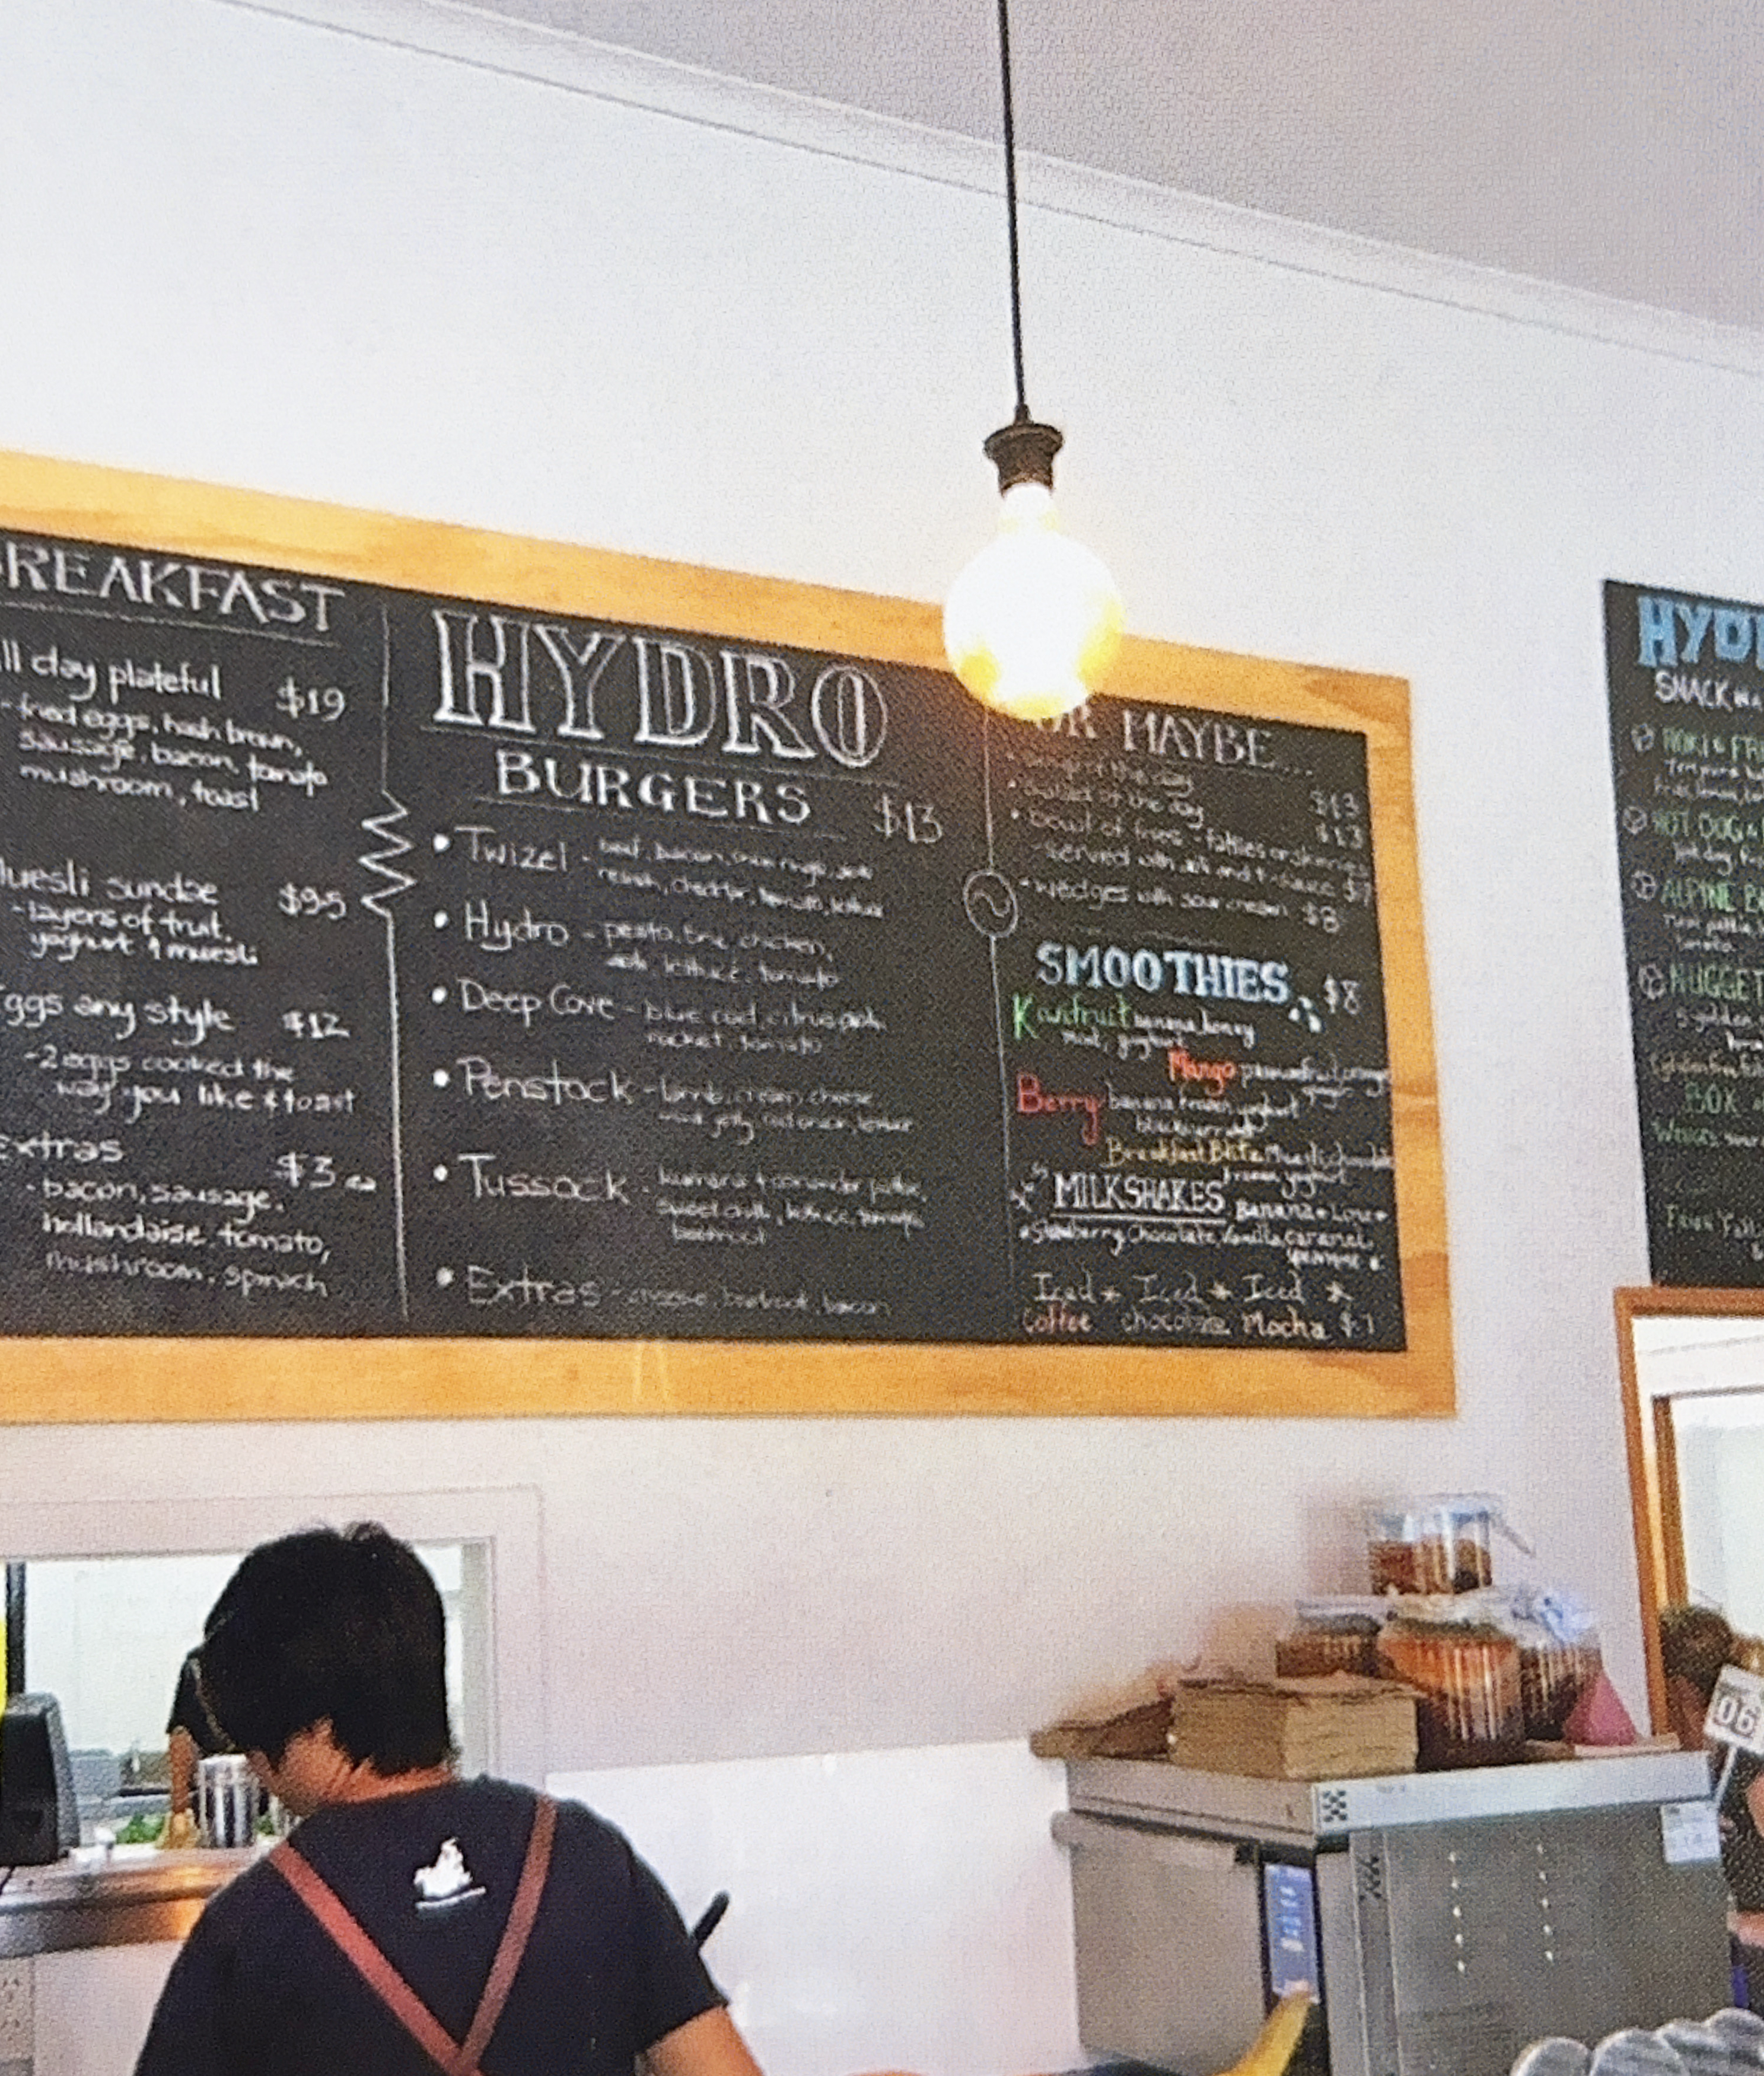 REAKFAST
ll day plateful $19
- fried eggs, hash brown,
sausage, bacon, tomato
mushroom, toast
uesli sundae $9.5
- layers of fruit,
yoghurt & muesli
ggs any style $12
- 2 eggs cooked the
way you like & toast
xtras $3 ea
- bacon, sausage,
hollandaise, tomato,
mushroom, spinach
HYDRO
BURGERS $13
• Twizel - beef, bacon, onion rings,
relish, cheddar, tomato, lettuce
• Hydro - pesto, brie, chicken,
aioli, lettuce, tomato
• Deep Cove - blue cod, citrus aioli,
rocket, tomato
• Penstock - lamb, cream cheese
mint jelly, red onion, lettuce
• Tussock - kumara & coriander pattie,
sweet chilli, lettuce, tomato,
beetroot
• Extras - cheese, beetroot, bacon
OR MAYBE...
• soup of the day $13
• salad of the day $13
• bowl of fries - fatties or skinnies
served with aioli and t. sauce $7
• wedges with sour cream $8
SMOOTHIES $8
Kiwifruit banana, honey
mint, yoghurt
Mango passionfruit, orange
Berry banana, frozen yoghurt
Breakfast Blitz Muesli, chocolate
frozen yoghurt
MILKSHAKES Banana • Lime •
• Strawberry, Chocolate, Vanilla, caramel,
Iced * Iced * Iced *
Coffee chocolate Mocha $7
HYD
SNACK
HOKI & FR
HOT DOG
ALPINE B
NUGGET
BOX
06